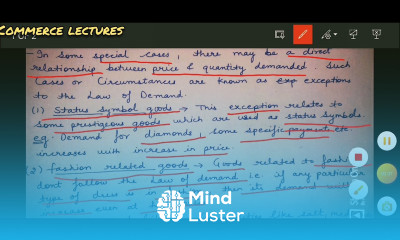 COMMERCE LECTURES
- In some special cases, there may be a direct
relationship between price & quantity demanded. Such
Cases or Circumstances are known as exp exceptions
to the Law of Demand.
(1) Status symbol goods → This exception relates to
some prestigeous goods which are used as status symbols.
eg. Demand for diamonds, some specific payments etc
increases with increase in price.
2) fashion related goods → Goods related to fashion
don't follow the law of demand i.e. if any particular
type of dress is in
Mind
Luster